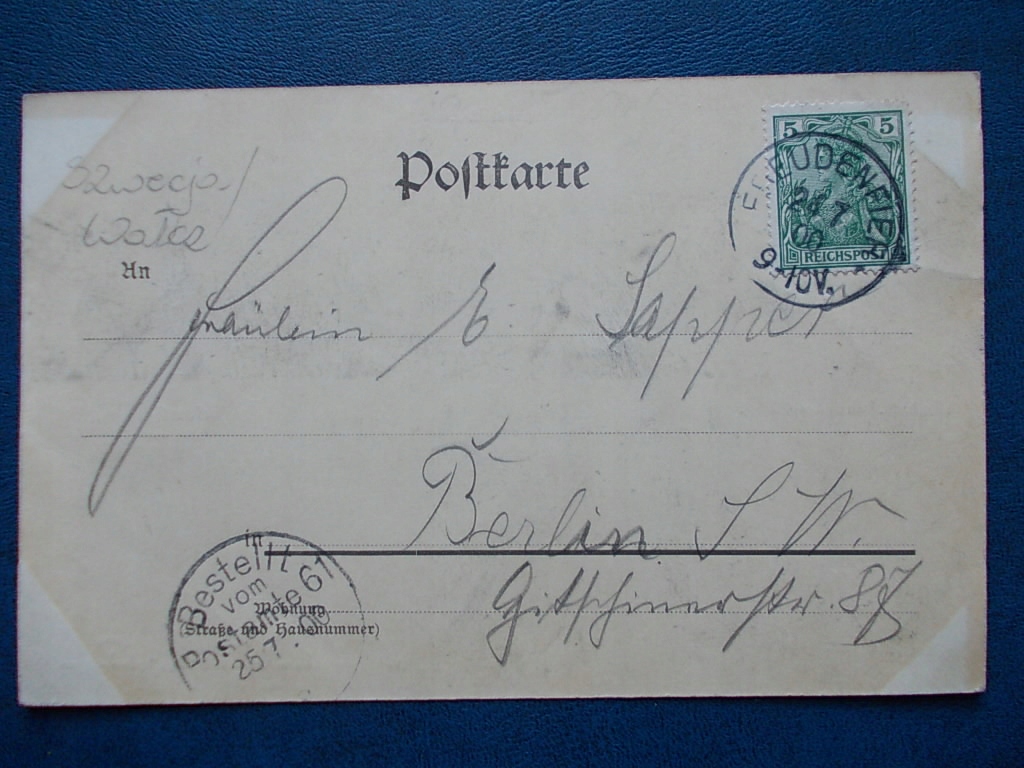 Postkarte
5 5
REICHSPOST
FREUDENFIER
24 7
00
9-10V.
Szwecja/
Wałcz
An
Fräulein E. Sapper
in
Berlin S. W.
Gitschinerstr. 87
Wohnung
(Straße und Hausnummer)
Bestellt
vom
Postamte 61
25 7. 00